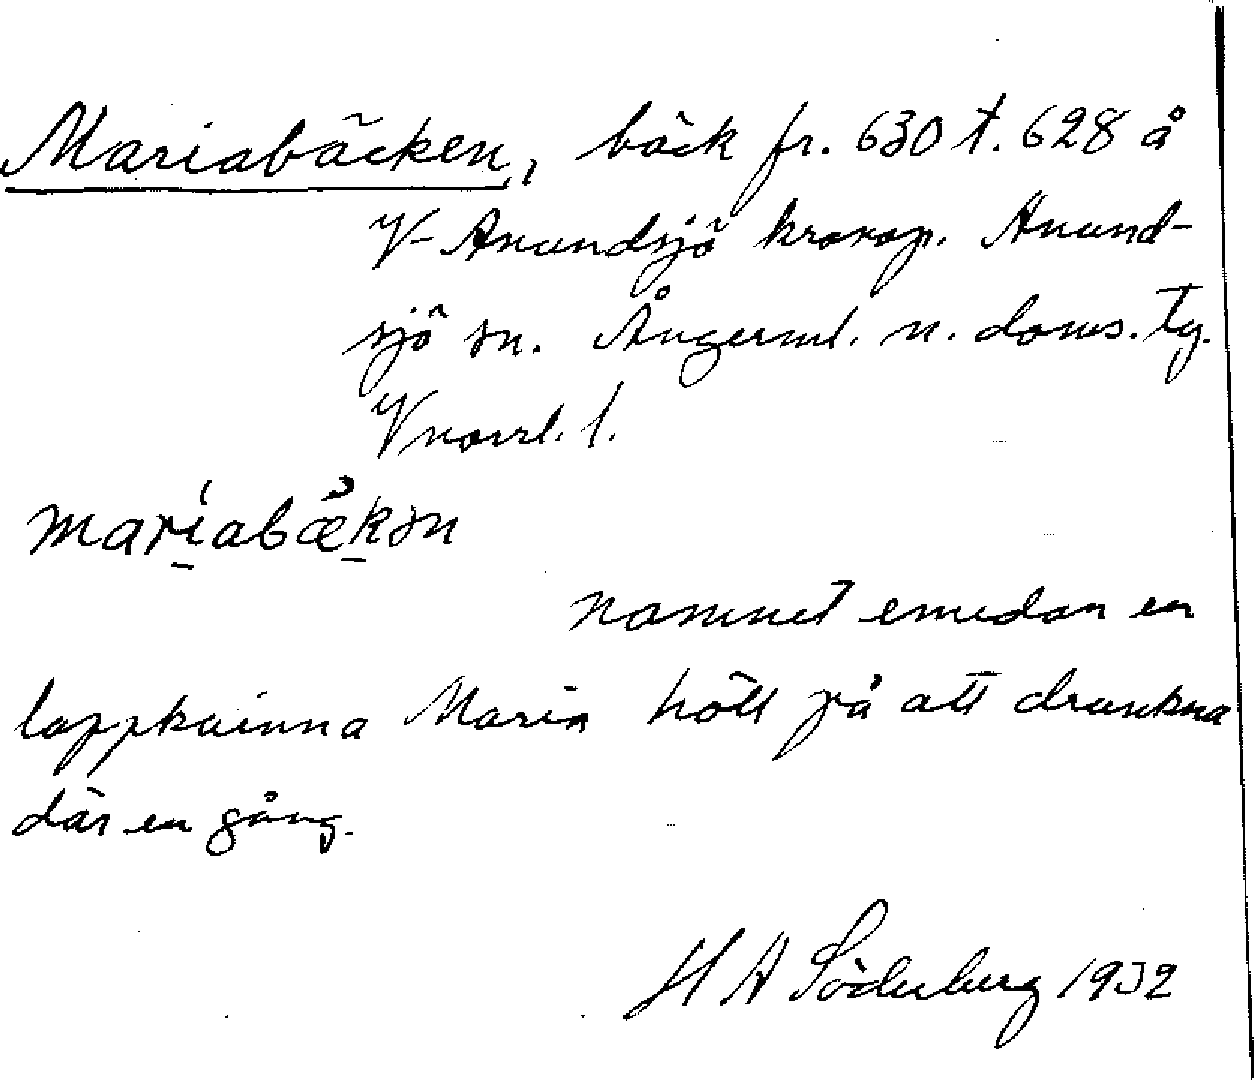 Mariabäcken, bäck fr. 630 t. 628 å
V Anundsjö kronop. Anund-
sjö sn. Ångerml. n. doms. tg.
Vnorrl. l.
mari̱abæ̀ḵən
namnet emedan en
lappkvinna Maria hölt på att drunkna
där en gång.
H A Söderberg 1932